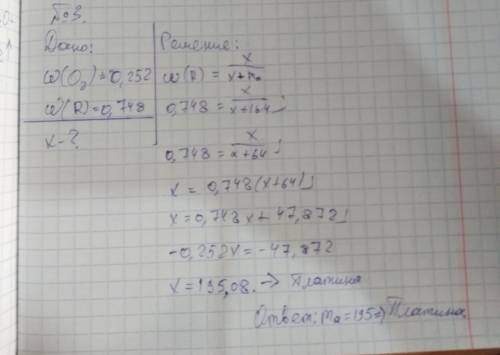 №3.
Дано:
ω(O₂)=0,252
ω(R)=0,748
x-?
Решение:
ω(R) = x/(x+Mₐ)
0,748 = x/(x+164);
0,748 = x/(x+64);
x = 0,748(x+64);
x=0,748x+47,872;
-0,252x=-47,872
x=195,08. -> Платина
Ответ: mₐ=195 => Платина.